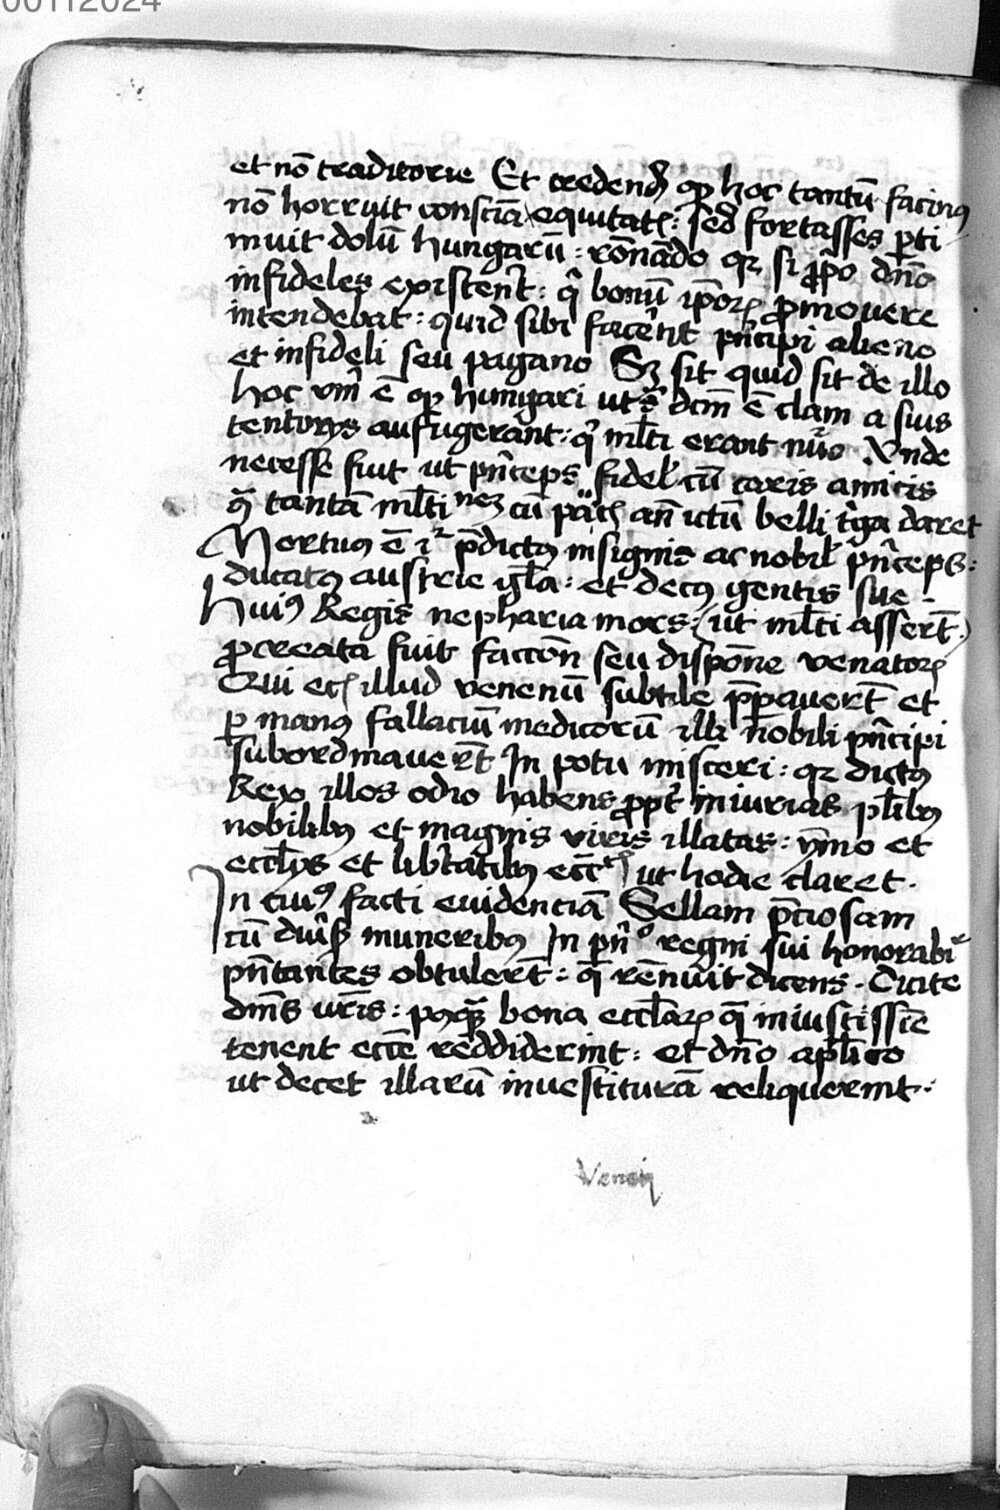 00112024
et nō traditorie Et credendū qp hoc tantū facinus
nō horruit consciā equitatꝭ : sed fortasses p̱ti
muit dolū hungarū : rōnādo qꝫ si p̱p̱o dn̄o
infideles existent : q̄ bonū ip̄oꝝ ꝓmovere
intendebat : quid sibi facēnt pn̄cipi alieno
et infideli seu pagano Sꝫ sit quid sit de illo
hoc vnū ē qp hungari ut sͣ dcm̄ ē clam a suis
tentorijs aufugerant : q̄ ml̄ti erant nūo Vnde
necesse fuit ut pn̄ceps fidel̄ cū caris amicis
q̄ tantā ml̄tinēꝫ cū pātꝭ an̄ ictū belli t̄ga daret
Mortuꝰ ē iͬ p̄dictꝰ insignis ac nobil̄ pn̄ceps :
ducatꝰ austrie gl̄a : et decꝰ gentis sue .
Huiꝰ Regis nepharia mors : (ut ml̄ti assert̄)
ꝓcreata fuit faccōn seu dispōne venatoꝝ
Qui etꝭ illud venenū subtile p̄p̱avert̄ et
ꝑ manꝰ fallaciū medicorū illi nobili pn̄cipi
subordinavert̄ In potu misceri : qꝫ dictꝰ
Rex illos odio habens ꝓpt̄ iniurias pl̄ibꝰ
nobilibꝰ et magnis viris illatas : ymo et
eccl̄ijs et lib̄tatibꝰ ecc̄ꝭ ut hodie claret .
In cuiꝰ facti evidenciā Sellam p̄ciosam
cū div̄sꝭ muneribꝰ In pn̄o regni sui honorabiͬ
pn̄tantes obtulert̄ : q̄ rēnuit dicens . Dicite
dn̄is vr̄is : pꝰqꝫ bona eccl̄aꝝ q̄ iniustissīe
tenent ecc̄e reddiderint : et dn̄o apl̄ico
ut decet illarū investiturā reliquerint .